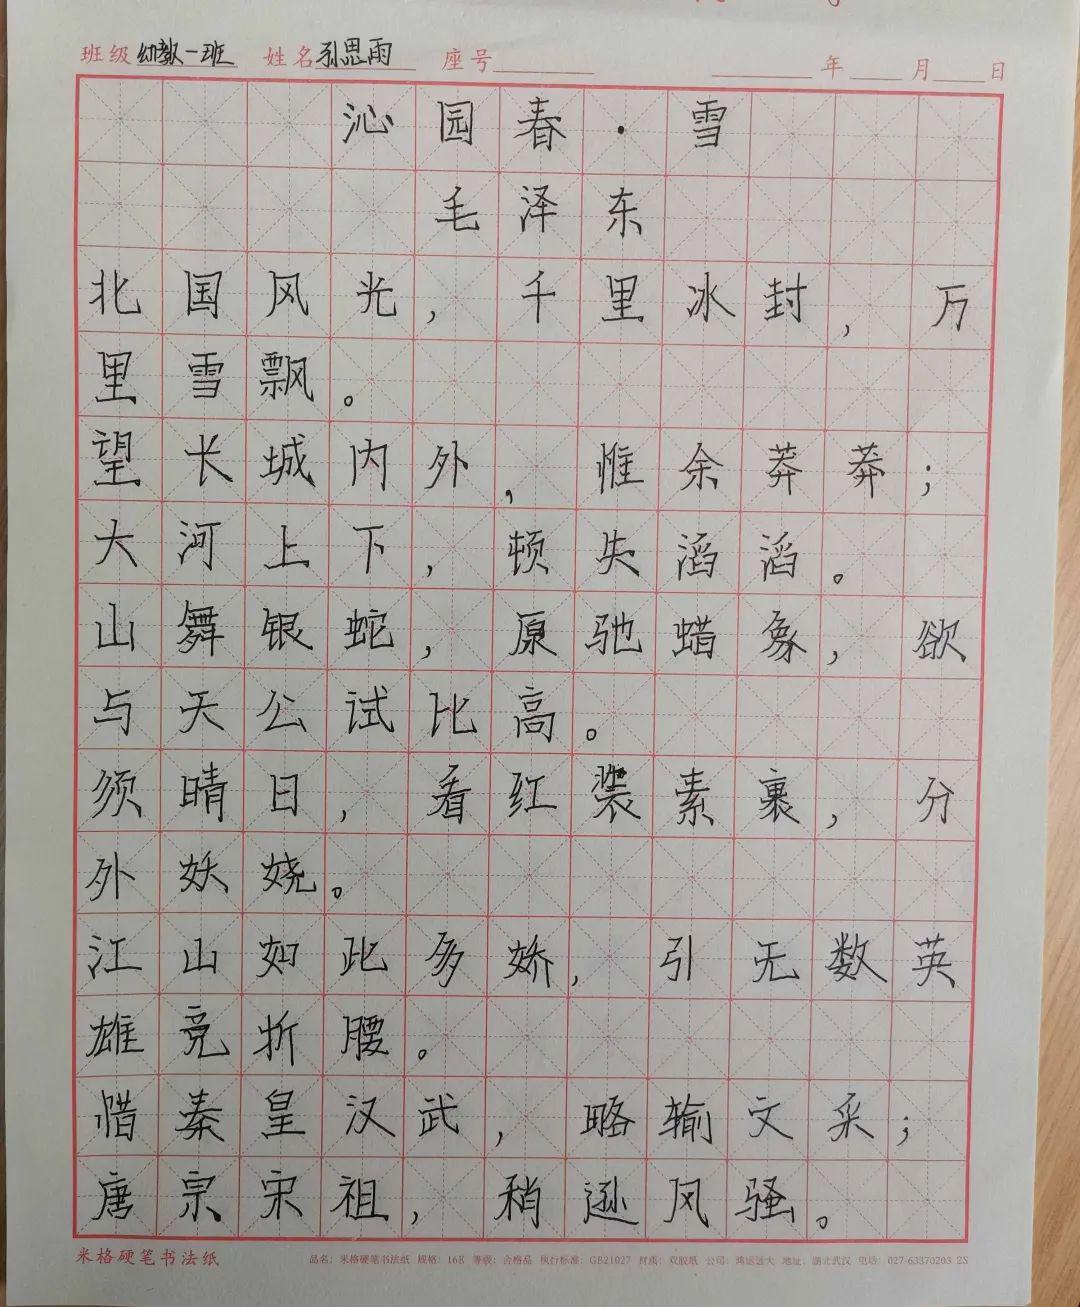 班级 幼教一班 姓名 孙思雨 座号 年 月 日
沁园春·雪
毛泽东
北国风光，千里冰封，万
里雪飘。
望长城内外，惟余莽莽；
大河上下，顿失滔滔。
山舞银蛇，原驰蜡象，欲
与天公试比高。
须晴日，看红装素裹，分
外妖娆。
江山如此多娇，引无数英
雄竞折腰。
惜秦皇汉武，略输文采；
唐宗宋祖，稍逊风骚。
米格硬笔书法纸 品名：米格硬笔书法纸 规格：16K 等级：合格品 执行标准：GB21027 材质：双胶纸 公司：鸿运远大 地址：湖北武汉 电话：027-63370203 2S